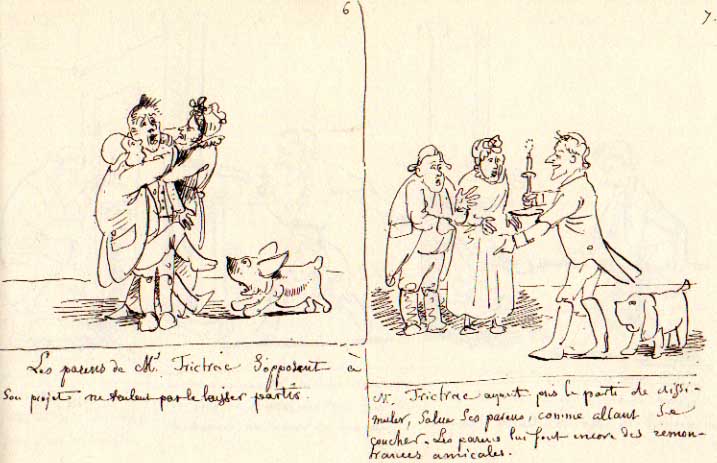 6
Les parens de Mr. Trictrac s'opposent à
Son projet ne veulent pas le laisser partir.
7.
Mr. Trictrac ayant pris le parti de dissi-
muler, Salue Ses parens, comme allant se
coucher. Les parens lui font encore des remon-
trances amicales.